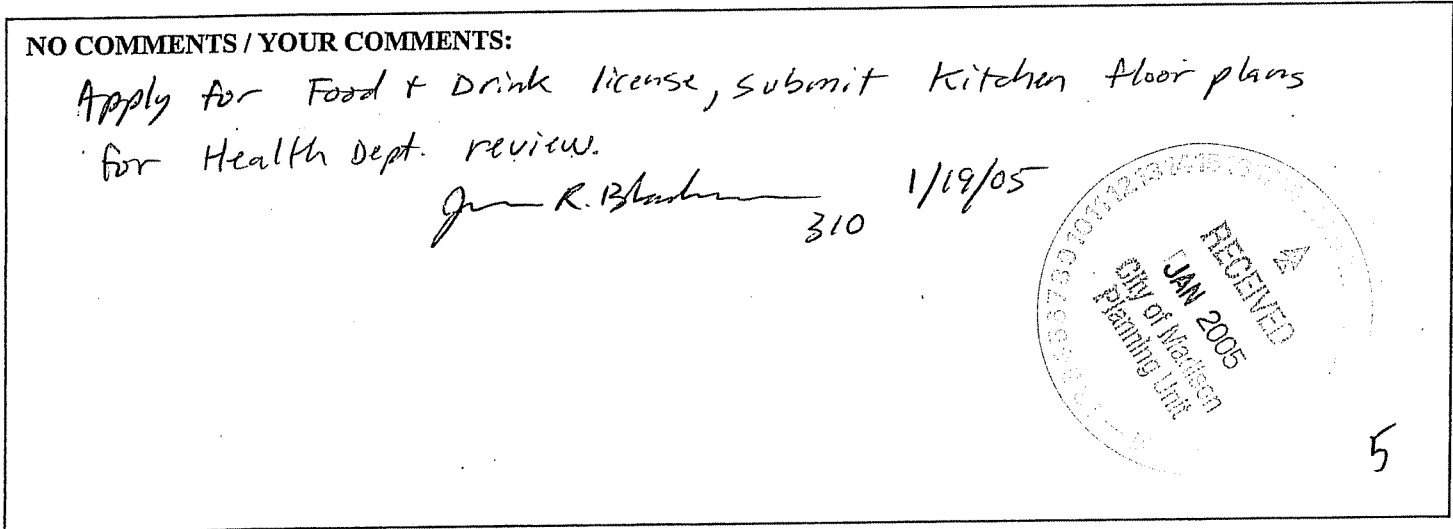 NO COMMENTS / YOUR COMMENTS:
Apply for Food + Drink license, submit Kitchen floor plans
for Health Dept. review.
R. 310 1/19/05
RECEIVED
JAN 2005
City of Madison
Planning Unit
5